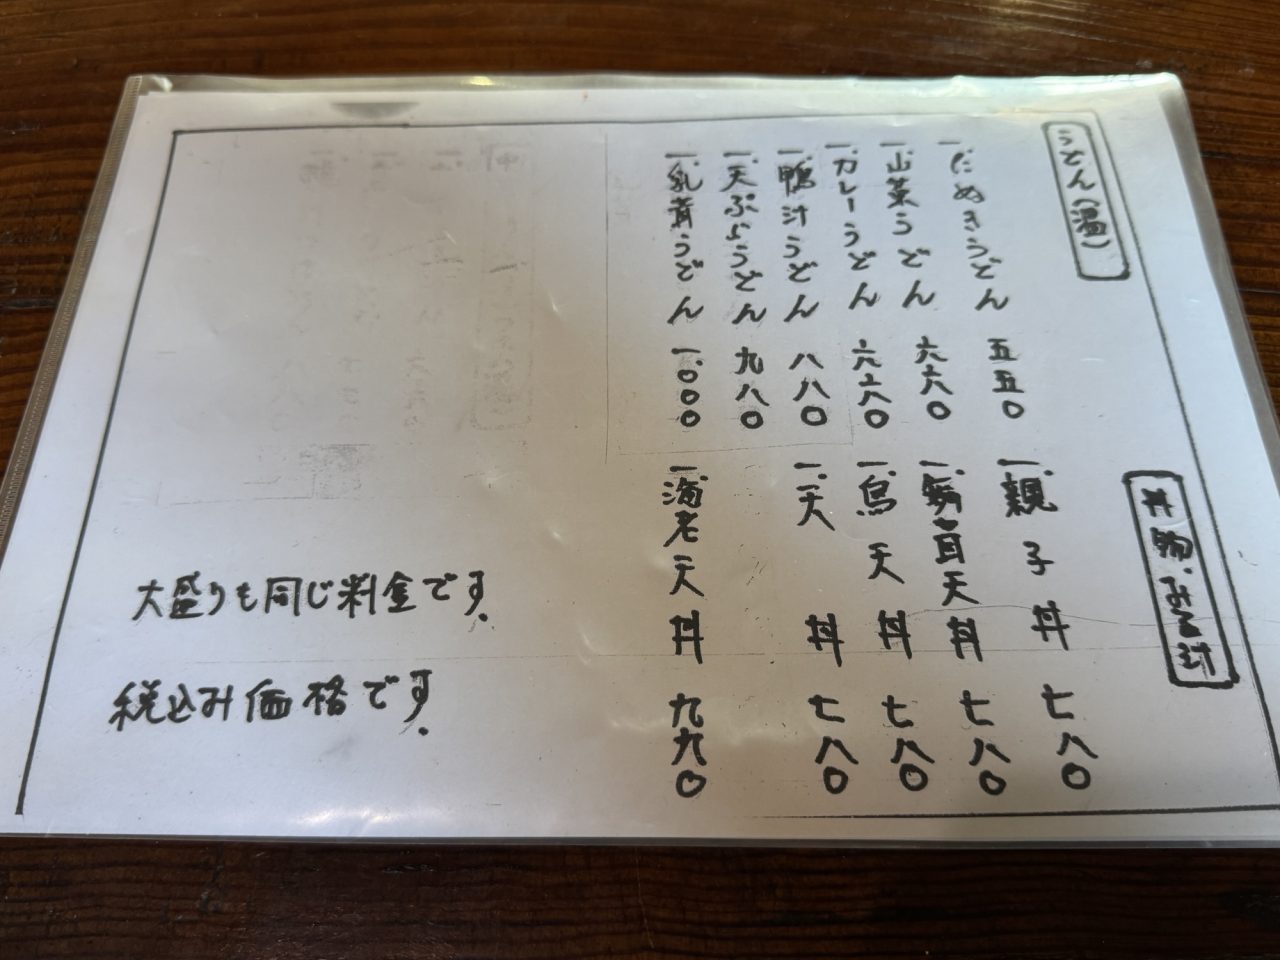 うどん(温)
一.たぬきうどん 五五〇
一.山菜うどん 六六〇
一.カレーうどん 六六〇
一.鴨汁うどん 八八〇
一.天ぷらうどん 九八〇
一.乳茸うどん 一.〇〇〇
丼物.みそ汁
一.親子丼 七八〇
一.舞茸天丼 七八〇
一.鳥天丼 七八〇
一.天丼 七八〇
一.海老天丼 九九〇
大盛りも同じ料金です.
税込み価格です.